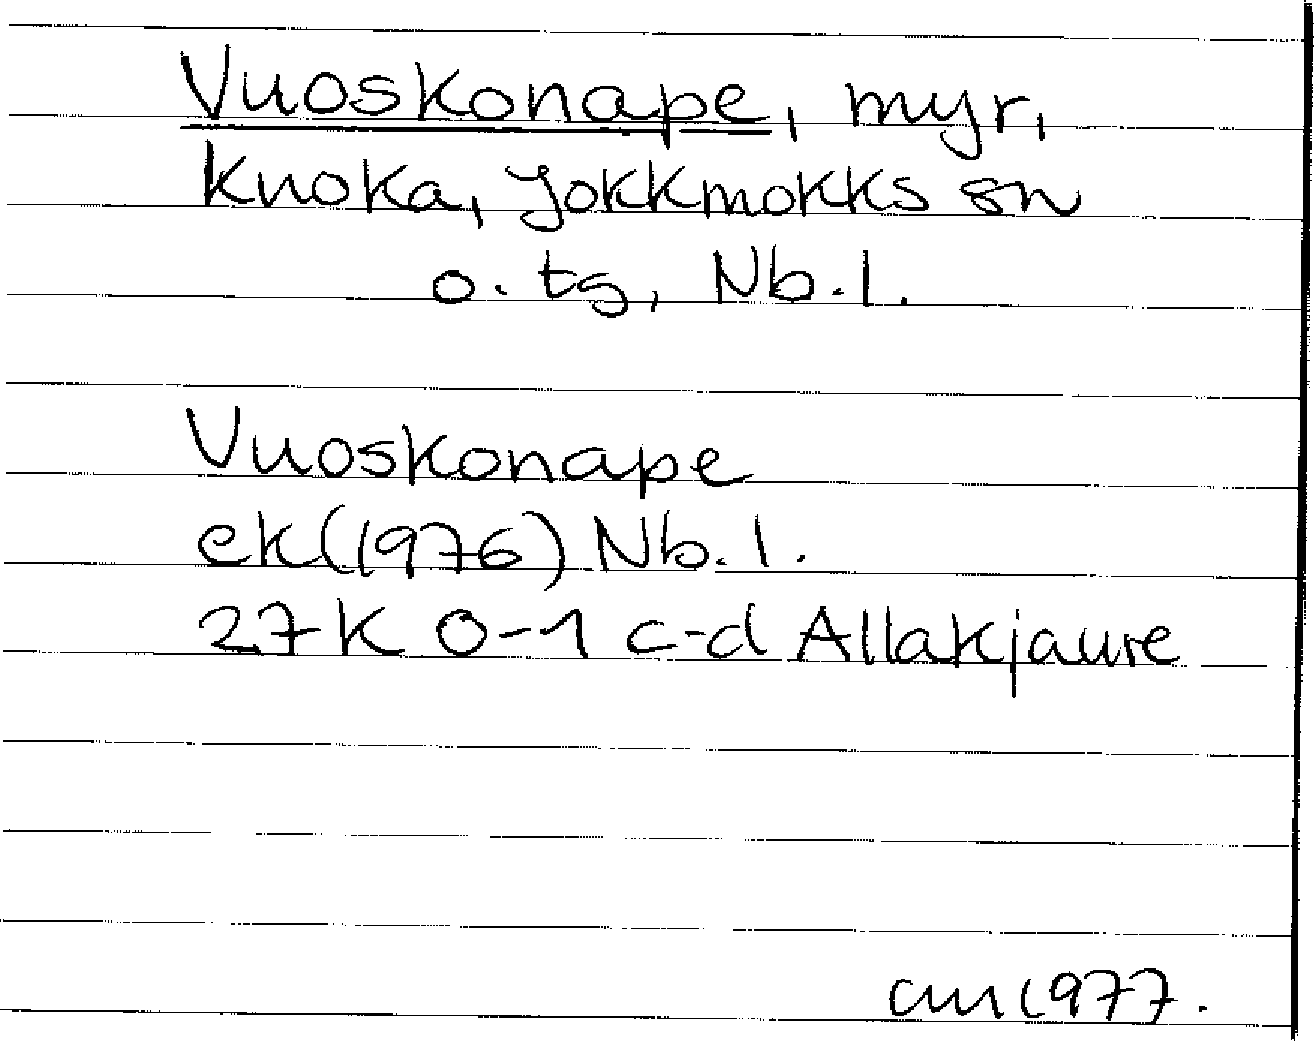 Vuoskonape, myr,
Knoka, Jokkmokks sn
o. tg, Nb.l.
Vuoskonape
ek(1976) Nb.l.
27K 0-1 c-d Allakjaure
cm 1977.